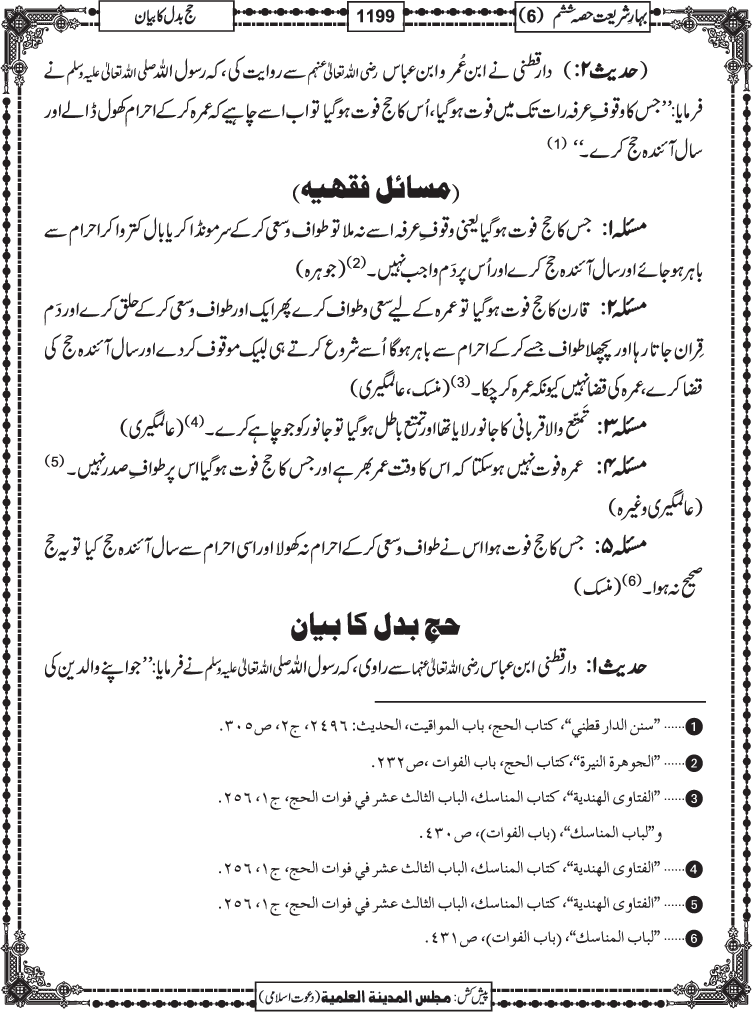 بہارِ شریعت حصہ ششم (6)
1199
حج بدل کا بیان
(حدیث ۲:) دارقطنی نے ابن عُمر و ابن عباس رضی اللہ تعالیٰ عنہم سے روایت کی، کہ رسول اللہ صلی اللہ تعالیٰ علیہ وسلم نے
فرمایا: ’’جس کا وقوفِ عرفہ رات تک میں فوت ہوگیا، اُس کا حج فوت ہوگیا تو اب اسے چاہیے کہ عمرہ کرکے احرام کھول ڈالے اور
سال آئندہ حج کرے۔‘‘ (1)
(مسائل فقهیه)
مسئلہ ۱: جس کا حج فوت ہوگیا یعنی وقوفِ عرفہ اسے نہ ملا تو طواف وسعی کرکے سر مونڈا کر یا بال کتروا کر احرام سے
باہر ہوجائے اور سال آئندہ حج کرے اور اُس پر دَم واجب نہیں۔ (2) (جوہرہ)
مسئلہ ۲: قارن کا حج فوت ہوگیا تو عمرہ کے لیے سعی وطواف کرے پھر ایک اور طواف وسعی کرکے حلق کرے اور دَم
قِران جاتا رہا اور پچھلا طواف جسے کرکے احرام سے باہر ہوگا اُسے شروع کرتے ہی لبیک موقوف کردے اور سال آئندہ حج کی
قضا کرے، عمرہ کی قضا نہیں کیونکہ عمرہ کرچکا۔ (3) (منسک، عالمگیری)
مسئلہ ۳: تَمتّع والا قربانی کا جانور لایا تھا اور تمتع باطل ہوگیا تو جانور کو جو چاہے کرے۔ (4) (عالمگیری)
مسئلہ ۴: عمرہ فوت نہیں ہوسکتا کہ اس کا وقت عمر بھر ہے اور جس کا حج فوت ہوگیا اس پر طواف صدر نہیں۔ (5)
(عالمگیری وغیرہ)
مسئلہ ۵: جس کا حج فوت ہوا اس نے طواف وسعی کرکے احرام نہ کھولا اور اسی احرام سے سال آئندہ حج کیا تو یہ حج
صحیح نہ ہوا۔ (6) (منسک)
حجِ بدل کا بیان
حدیث ۱: دارقطنی ابن عباس رضی اللہ تعالیٰ عنہما سے راوی، کہ رسول اللہ صلی اللہ تعالیٰ علیہ وسلم نے فرمایا: ’’جو اپنے والدین کی
1 ...... ”سنن الدار قطني“، كتاب الحج، باب المواقيت، الحديث: ٢٤٩٦، ج٢، ص٣٠٥.
2 ...... ”الجوهرة النيرة“، كتاب الحج، باب الفوات ،ص٢٣٢.
3 ...... ”الفتاوى الهندية“، كتاب المناسك، الباب الثالث عشر في فوات الحج، ج١، ٢٥٦.
و”لباب المناسك“، (باب الفوات)، ص٤٣٠.
4 ...... ”الفتاوى الهندية“، كتاب المناسك، الباب الثالث عشر في فوات الحج، ج١، ٢٥٦.
5 ...... ”الفتاوى الهندية“، كتاب المناسك، الباب الثالث عشر في فوات الحج، ج١، ٢٥٦.
6 ...... ”لباب المناسك“، (باب الفوات)، ص٤٣١.
پیش کش: مجلس المدينة العلمية (دعوت اسلامی)